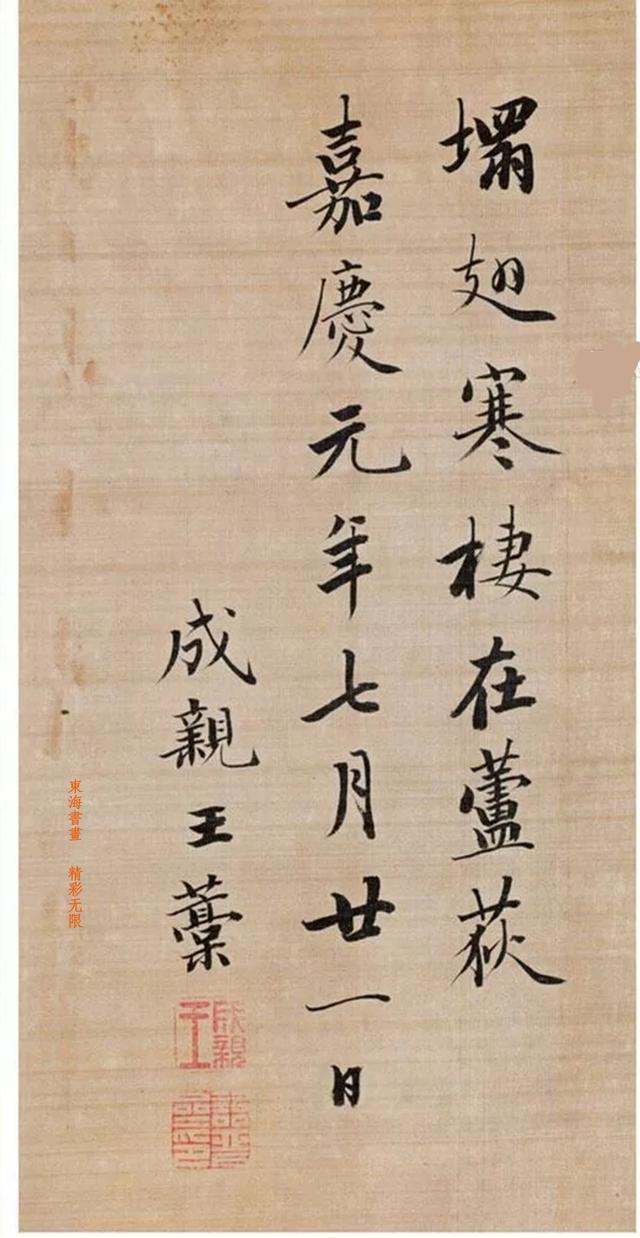 塌翅寒棲在蘆荻
嘉慶元年七月廿一日
成親王藁
成親王
東海書畫 精彩无限